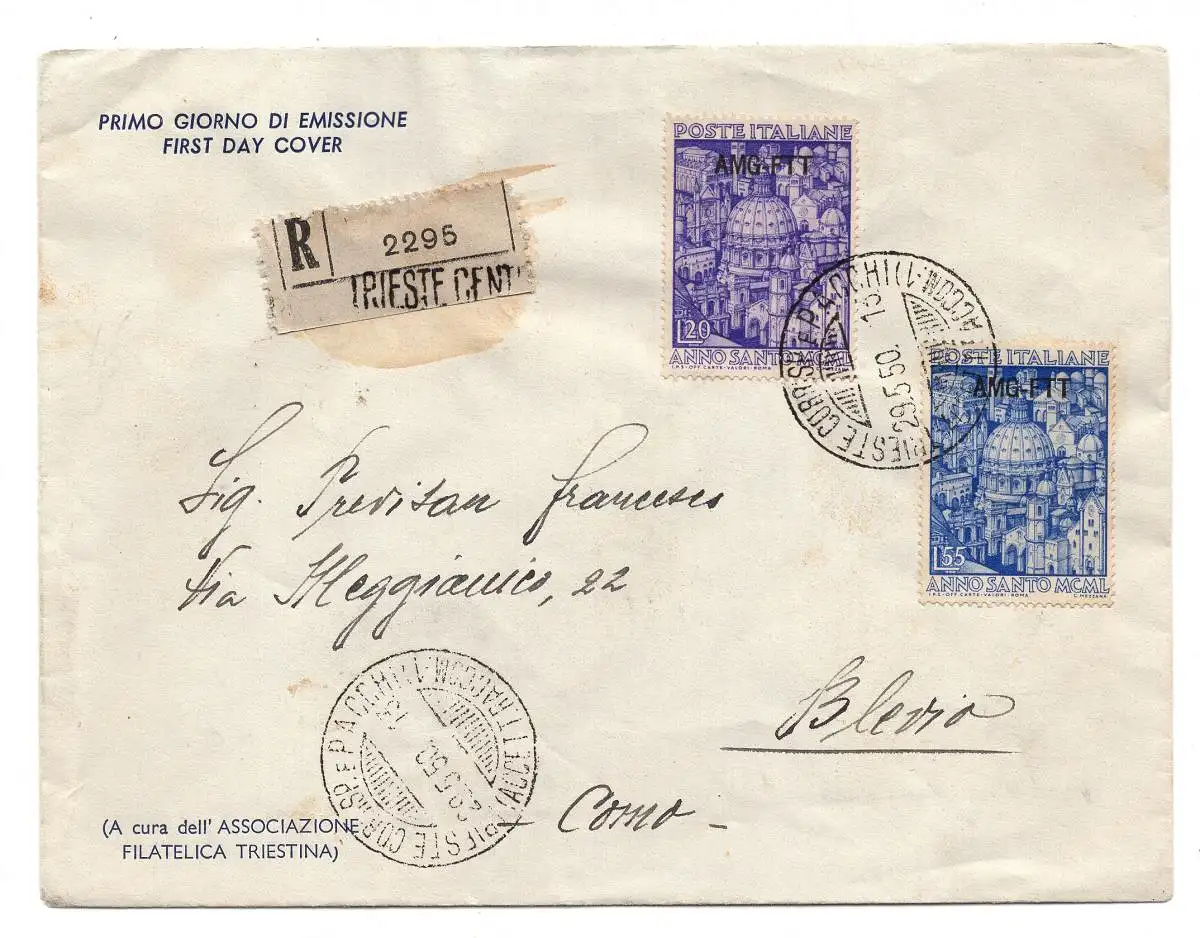 PRIMO GIORNO DI EMISSIONE
FIRST DAY COVER
R
2295
TRIESTE CENT
POSTE ITALIANE
AMG-FTT
L20
ANNO SANTO MCML
I.P.S-OFF CARTE-VALORI-ROMA
TRIESTE CORRISP E PACCHI (1
RACCOM.
29.5.50. 13
POSTE ITALIANE
AMG-FTT
L55
ANNO SANTO MCML
I.P.S-OFF CARTE-VALORI-ROMA
C. MEZZANA
Sig. Trevisan Francesco
Via Meggianico, 22
Blevio
- Como -
TRIESTE CORRISP E PACCHI (ACCETT RACCOM.1
29.5.50 13
(A cura dell' ASSOCIAZIONE
FILATELICA TRIESTINA)